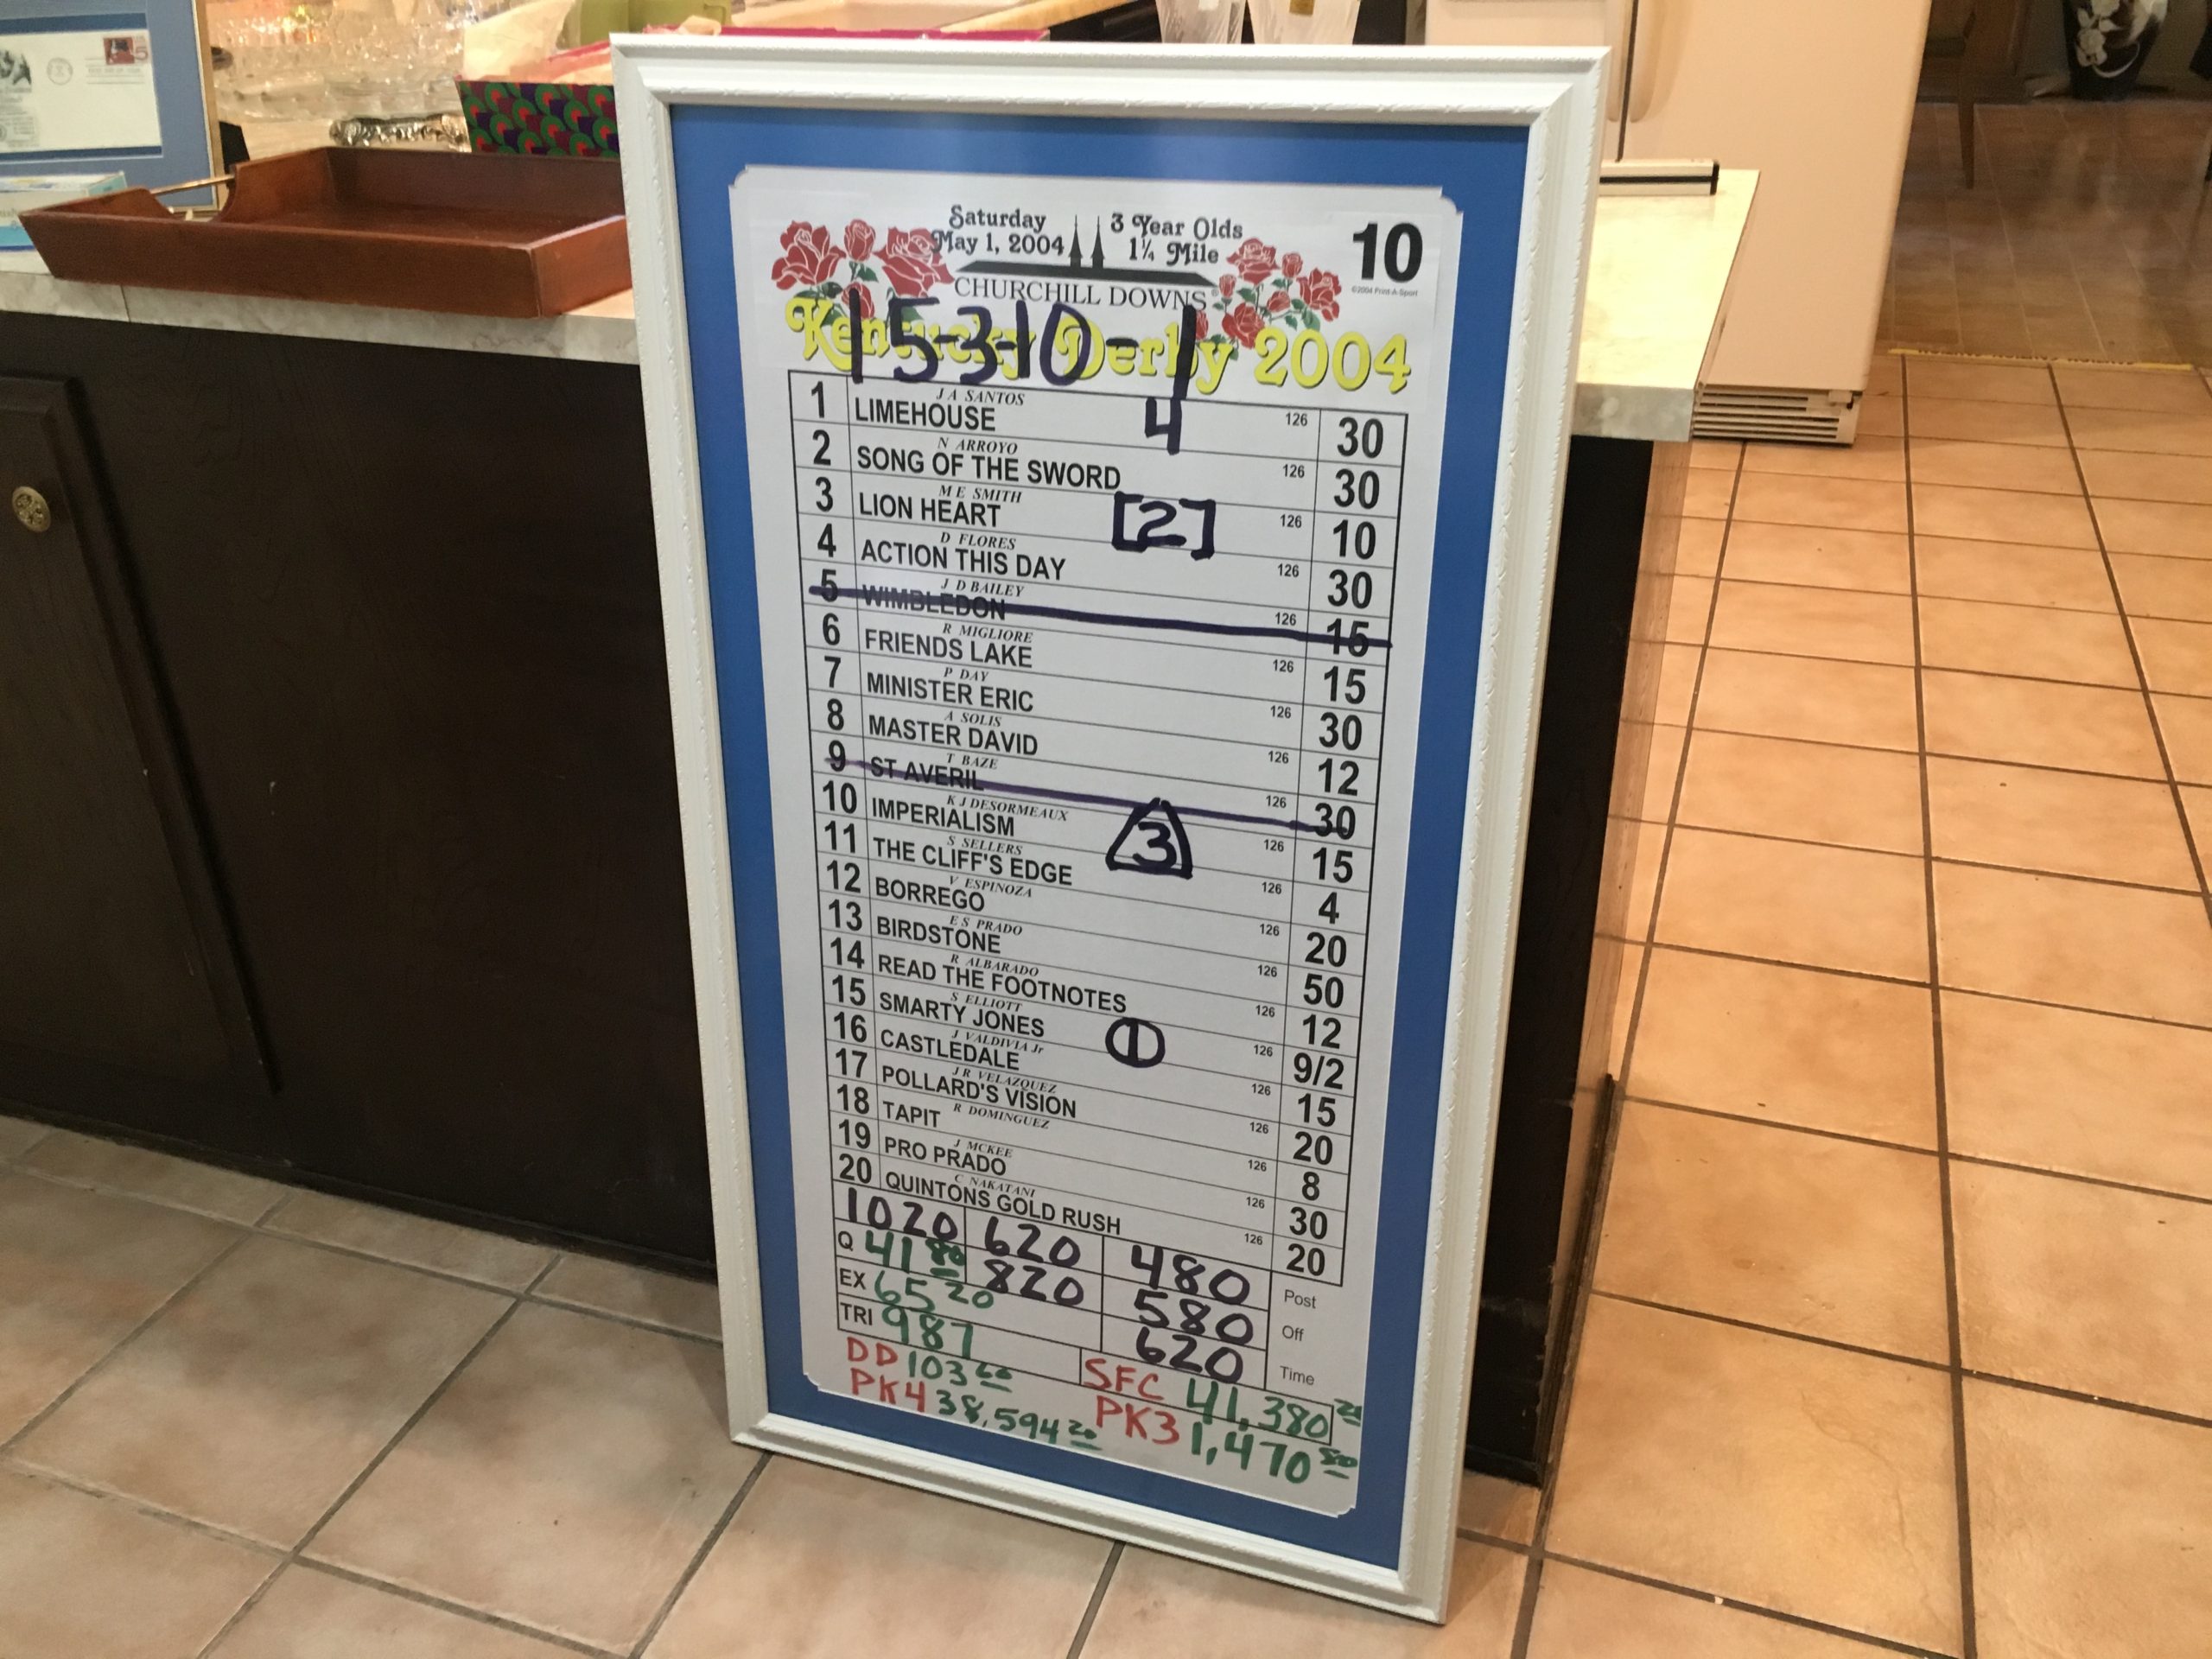 Saturday 3 Year Olds
May 1, 2004 1¼ Mile
10
©2004 Print-A-Sport
CHURCHILL DOWNS
Kentucky Derby 2004
15-3-10-1
J A SANTOS
1 LIMEHOUSE 4 126 30
N ARROYO
2 SONG OF THE SWORD 126 30
M E SMITH
3 LION HEART [2] 126 10
D FLORES
4 ACTION THIS DAY 126 30
J D BAILEY
5 WIMBLEDON 126 15
R MIGLIORE
6 FRIENDS LAKE 126 15
P DAY
7 MINISTER ERIC 126 30
A SOLIS
8 MASTER DAVID 126 12
T BAZE
9 ST AVERIL 126 30
K J DESORMEAUX
10 IMPERIALISM 3 126 15
S SELLERS
11 THE CLIFF'S EDGE 126 4
V ESPINOZA
12 BORREGO 126 20
E S PRADO
13 BIRDSTONE 126 50
R ALBARADO
14 READ THE FOOTNOTES 126 12
S ELLIOTT
15 SMARTY JONES 1 126 9/2
J VALDIVIA Jr
16 CASTLEDALE 126 15
J R VELAZQUEZ
17 POLLARD'S VISION 126 20
R DOMINGUEZ
18 TAPIT 126 8
J MCKEE
19 PRO PRADO 126 30
C NAKATANI
20 QUINTONS GOLD RUSH 126 20
1020 620 480 Post
Q 41 80 820 580 Off
EX 65 20 620 Time
TRI 987
DD 103 60 SFC 41,380 20
PK4 38,594 20 PK3 1,470 80